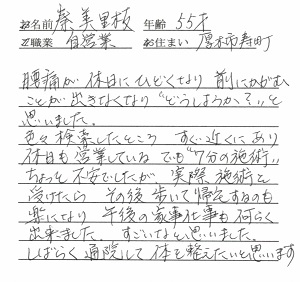 お名前 秦 美里枝 年齢 55才
ご職業 自営業 お住まい 厚木市寿町
腰痛が休日にひどくなり 前にかがむ
ことが出きなくなり"どうしようか?"と
思いました.
色々検索したところ すぐ近くにあり
休日も営業している でも"7分の施術"
ちょっと不安でしたが 実際 施術を
受けたら その後 歩いて帰宅するのも
楽になり 午後の家事仕事も何らく
出来ました. すごいなと思いました.
しばらく通院して体を整えたいと思います